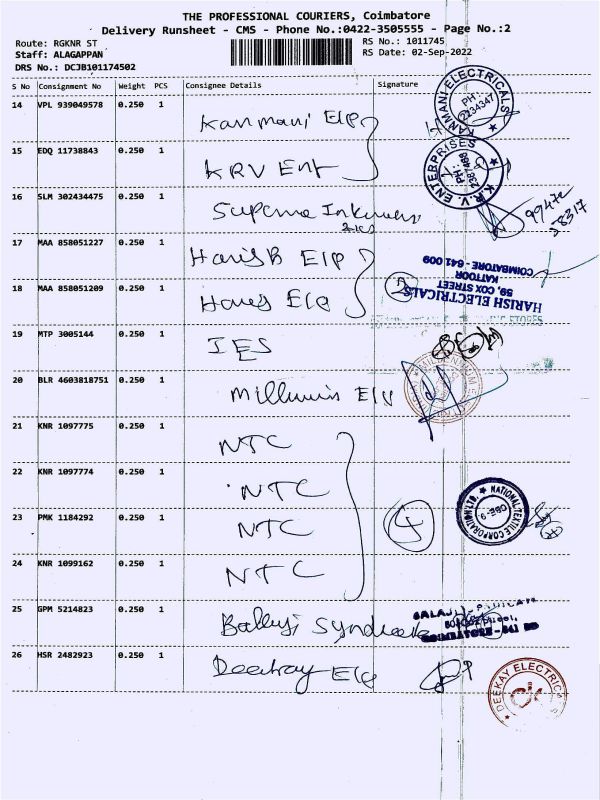 THE PROFESSIONAL COURIERS, Coimbatore
Delivery Runsheet - CMS - Phone No.:0422-3505555 - Page No.:2
Route: RGKNR ST
RS No.: 1011745
Staff: ALAGAPPAN
RS Date: 02-Sep-2022
DRS No.: DCJB101174502
S No Consignment No Weight PCS Consignee Details Signature
14 VPL 939049578 0.250 1 Kanmani Elp
KANMANI ELECTRICALS
PH: 2234347
15 EDQ 11738843 0.250 1 KRV Ent
K.R.V. ENTERPRISES
PH.: 2387468
16 SLM 302434475 0.250 1
17 MAA 858051227 0.250 1 Elp
18 MAA 858051209 0.250 1
HARISH ELECTRICALS
59, COX STREET
KATTOOR
COIMBATORE - 641 009
19 MTP 3005144 0.250 1 IES
20 BLR 4603818751 0.250 1
21 KNR 1097775 0.250 1 NTC
22 KNR 1097774 0.250 1 NTC
23 PMK 1184292 0.250 1 NTC
4
NATIONAL TEXTILE CORPORATION LTD.
24 KNR 1099162 0.250 1 NTC
25 GPM 5214823 0.250 1 Syndicate
26 HSR 2482923 0.250 1 Deekay
DEEKAY ELECTRICALS
dk